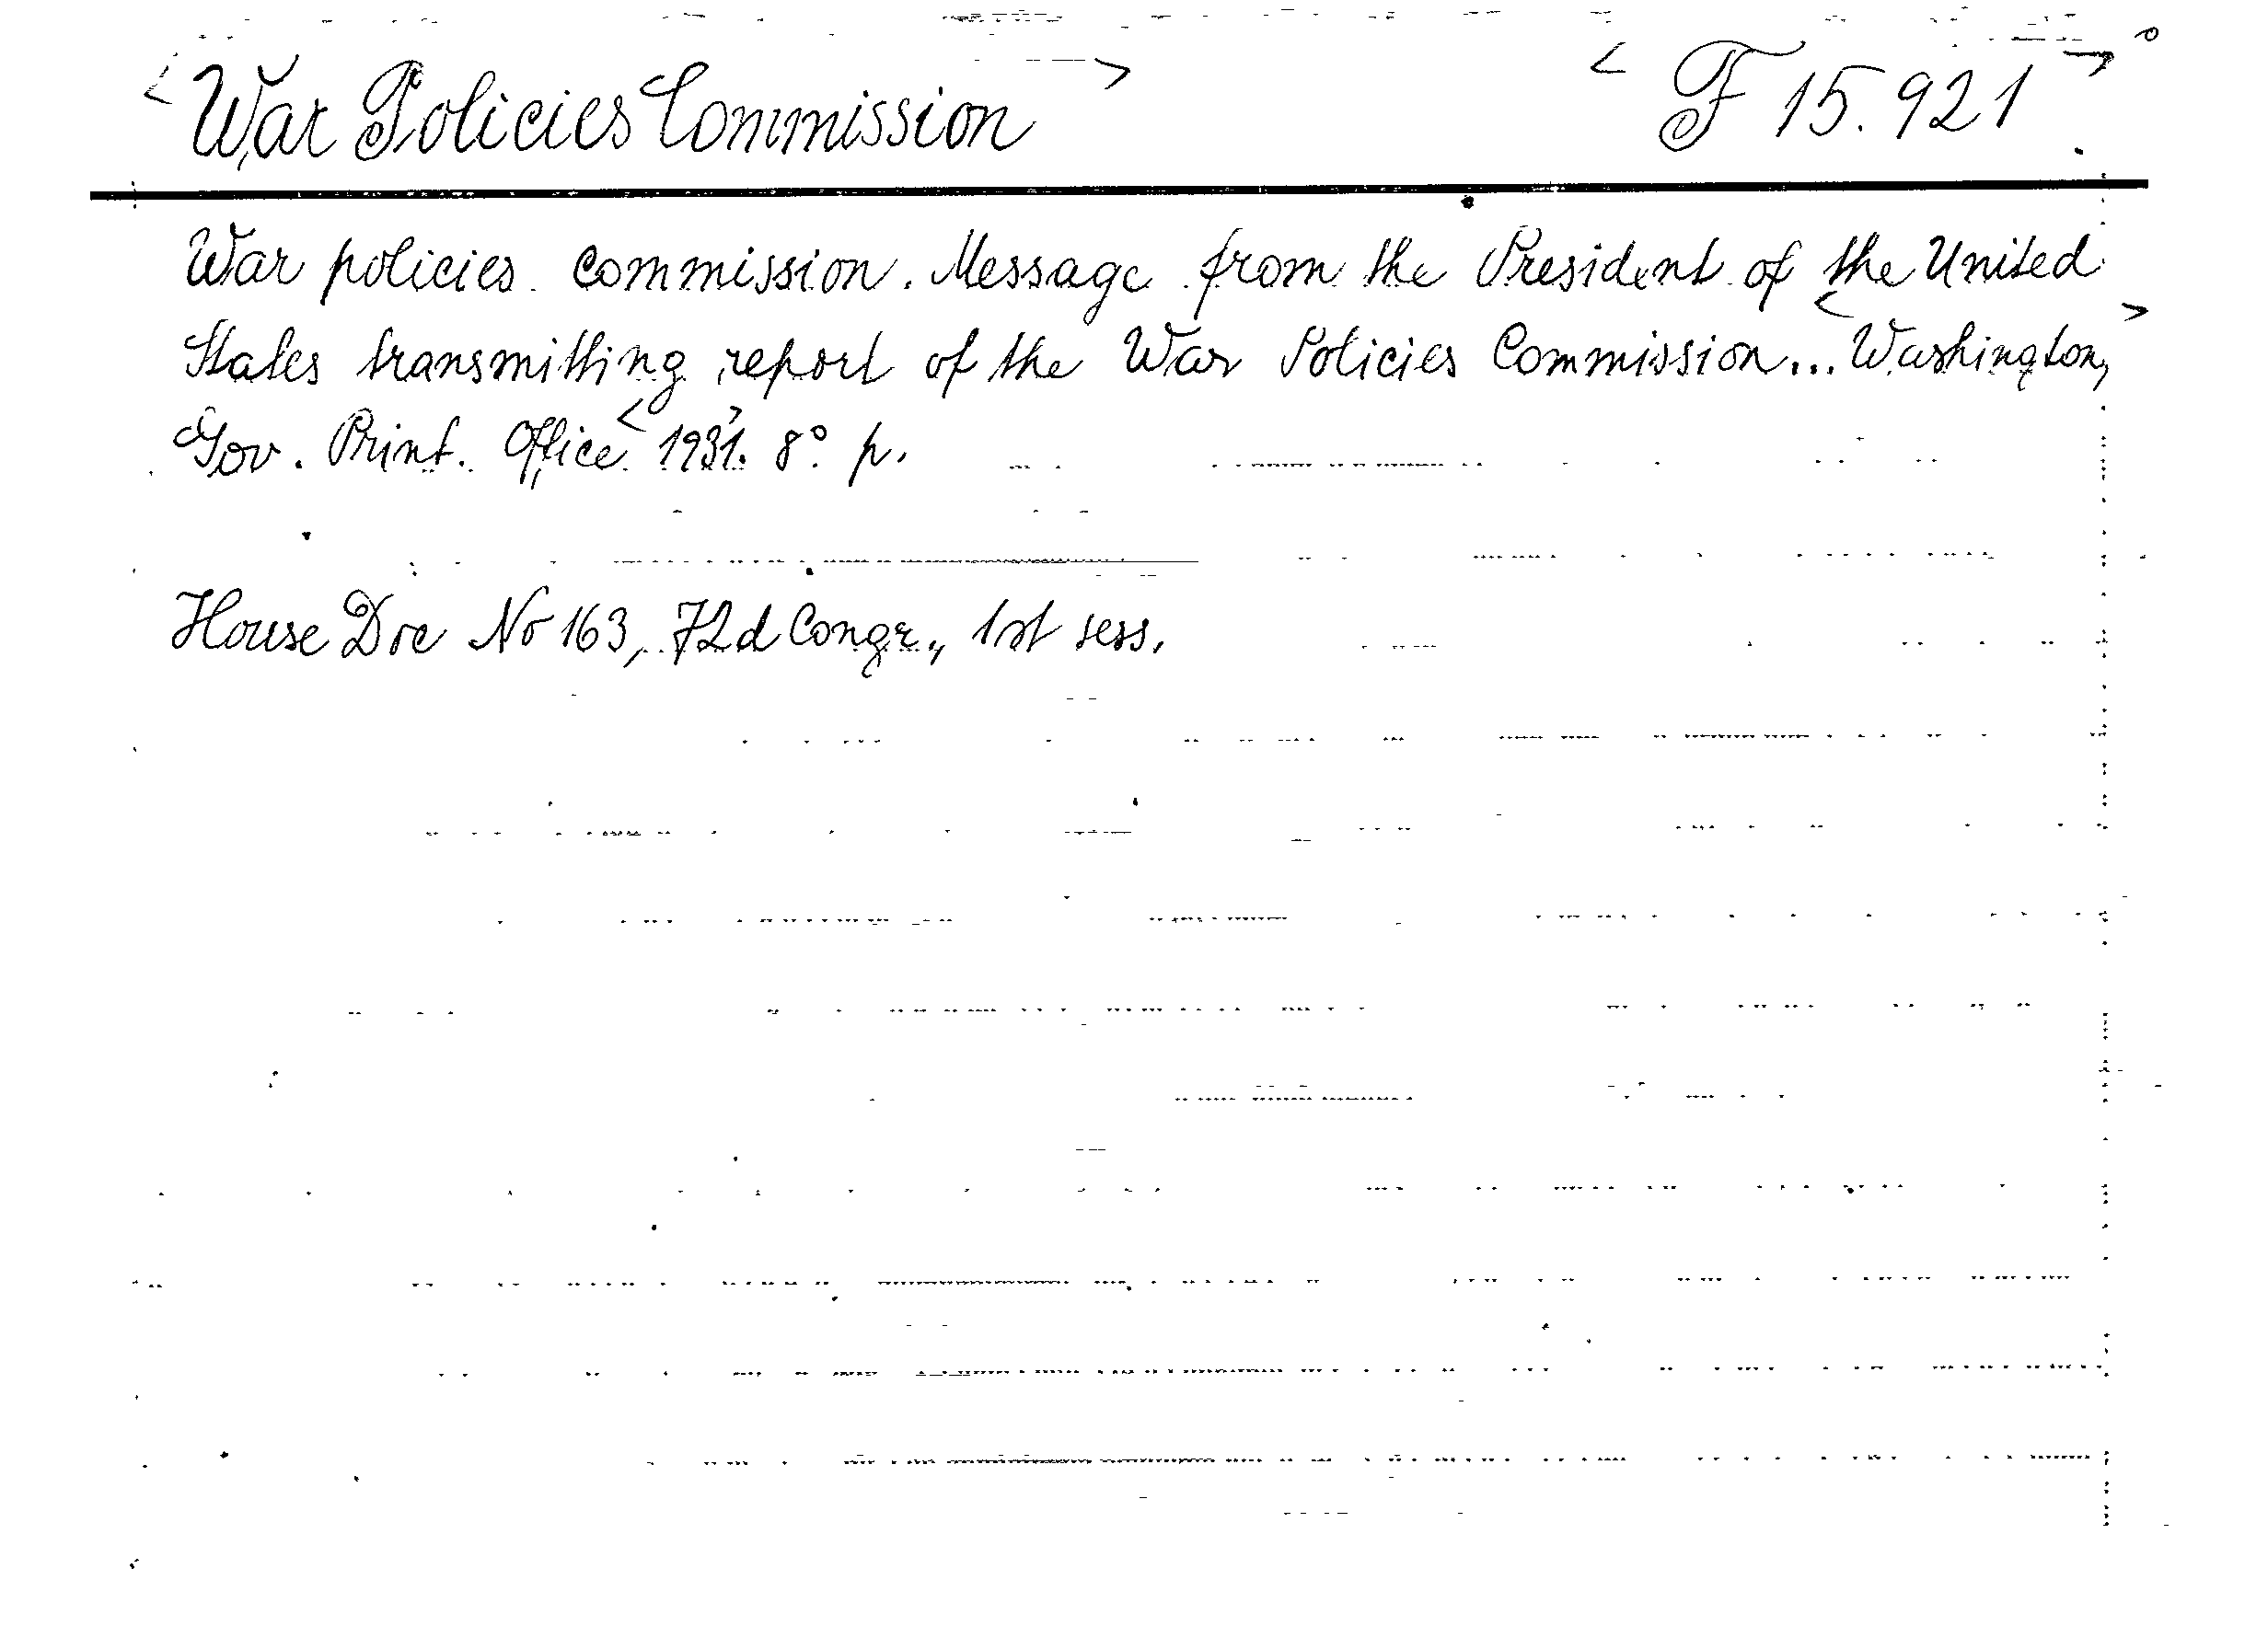 <War Policies Commission> <F 15.921>
War policies commission. Message from the President of the United
States transmitting report of the War Policies Commission... <Washington,>
Gov. Print. Office <1931>. 8° p.
House Doc No 163, 72d Congr., 1st sess.